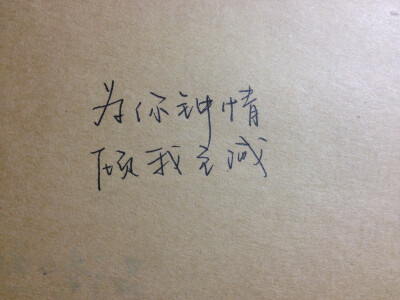 为你钟情
倾我至诚